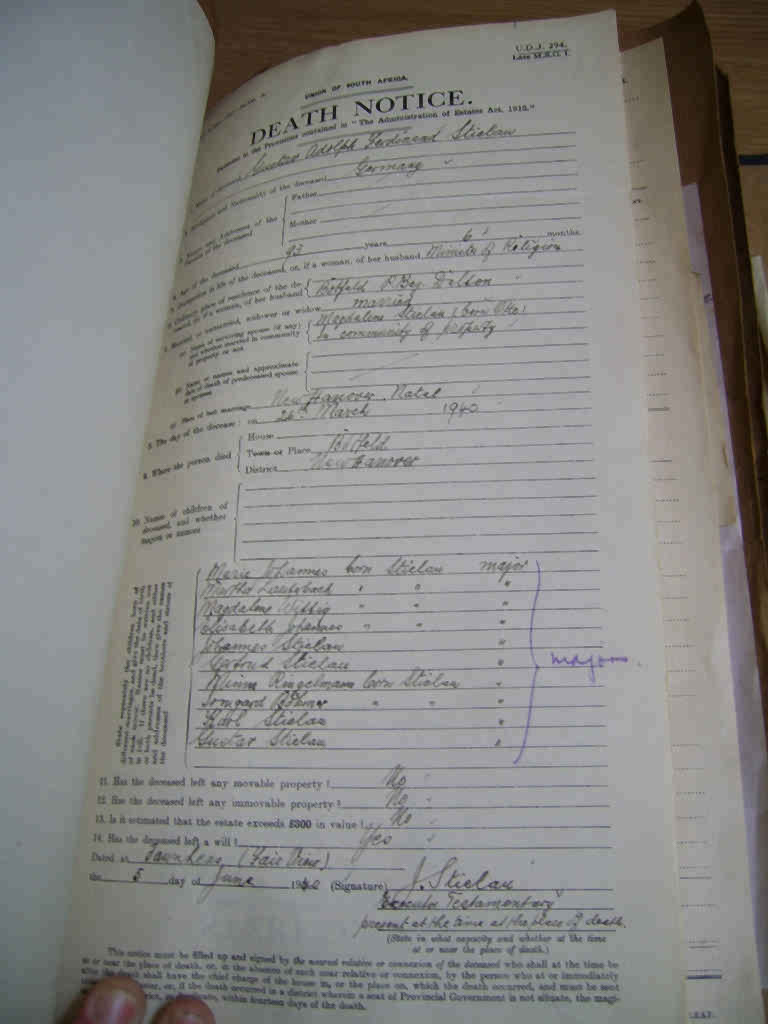 U.D.J. 294.
Late M.S.O. 1.
UNION OF SOUTH AFRICA.
DEATH NOTICE.
Pursuant to the Provisions contained in "The Administration of Estates Act, 1913."
Gustav Adolph Ferdinand Stielau
Birthplace and Nationality of the deceased Germany "
3. Names and Addresses of the Parents of the deceased
Father
Mother
4. Age of the deceased 93 years 6 months
5. Occupation in life of the deceased, or, if a woman, of her husband Minister of Religion
6. Ordinary place of residence of the deceased, or, if a woman, of her husband P. Bag Dalton
7. Married or unmarried, widower or widow married
(a) Name of surviving spouse (if any) and whether married in community of property or not Magdaline Stielau (born Otte)
in community of property
(b) Name or names and approximate date of death of predeceased spouse or spouses
(c) Place of last marriage New Hanover, Natal
8. The day of the decease: on 26th March 1940
9. Where the person died
House
Town or Place
District New Hanover
10. Names of children of deceased, and whether majors or minors
State separately the children born of different marriages, and give the date of birth of each minor.
Marie Johannes born Stielau major
" " "
Magdaline Wittig " " "
Elisabeth Johannes " " "
Johannes Stielau "
Gertrud Stielau "
Minna Ringelmann born Stielau "
Irmgard " " "
Karl Stielau "
Gustav Stielau "
majors
11. Has the deceased left any movable property? No
12. Has the deceased left any immovable property? No
13. Is it estimated that the estate exceeds £300 in value? No
14. Has the deceased left a will? Yes
Dated at
the 5 day of June 1940 (Signature) J. Stielau
Executor Testamentary
present at the time at the place of death.
(State in what capacity and whether at the time at or near the place of death.)
This notice must be filled up and signed by the nearest relative or connexion of the deceased who shall at the time be
at or near the place of death, or, in the absence of such near relative or connexion, by the person who at or immediately
after the death shall have the chief charge of the house in, or the place on, which the death occurred, and must be sent
or, if the death occurred in a district wherein a seat of Provincial Government is not situate, the magi-
within fourteen days of the death.